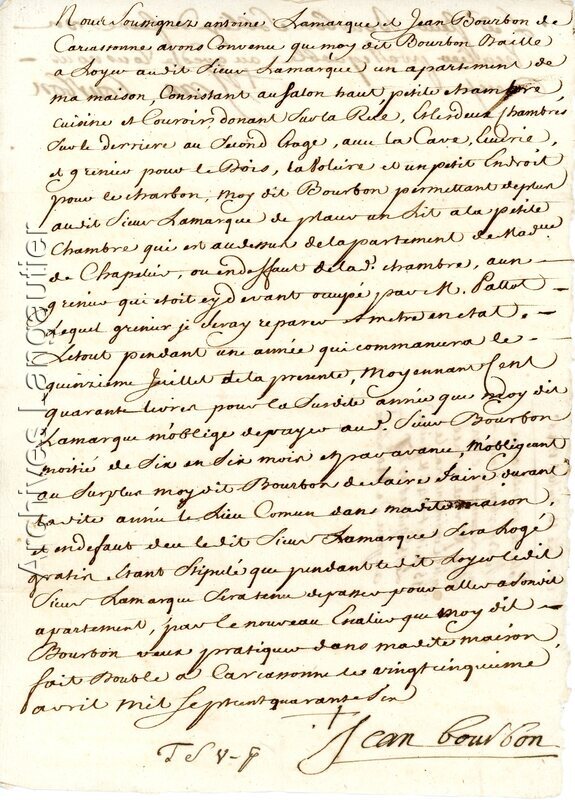 Nous Soussignez antoine Lamarque et Jean Bourbon de
Carcassonne avons Convenu que moy dit Bourbon Baille
a Loyer audit Sieur Lamarque un apartement de
ma maison, Consistant au Salon haut, petite chambre
cuisine et Couroir, donant Sur la Rüe, Et les deux chambres
Sur le derriere au Second Etage, avec la Cave, Ecurie,
et grenier pour le Bois, la voliere et un petit Endroit
pour le charbon, moy dit Bourbon permettant de plus
audit Sieur Lamarque de placer un Lit a la petite
Chambre qui est audessus de lapartement de Made.
de Chapelier, ou en deffaut de la d. chambre, a un
grenier qui etoit cy devant occupé par M. Pallot
Lequel grenier je Seray reparer & metre en etat.
Le tout pendant une année qui commancera le
quinzieme Juillet de la presente, Moyennant Cent
quarante Livres pour la Susdite année que moy dit
Lamarque m'oblige de payer au d. Sieur Bourbon
moitié de Six en Six mois et par avance, M'obligeant
au Surplus moy dit Bourbon de faire faire durant
Ladite année le Lieu Comun dans madite maison,
et en defaut de ce le dit Sieur Lamarque Sera Logé
gratis, Etant Stipulé que pendant le dit Loyer le dit
Sieur Lamarque Sera tenu de passer pour aller a Son dit
apartement, par le nouveau Escalier que moy dit
Bourbon veux pratiquer dans madite maison
fait Double a Carcassonne le vingt cinquieme
avril Mil Sept cent quarante Six
Jean bourbon
Archives Langautier